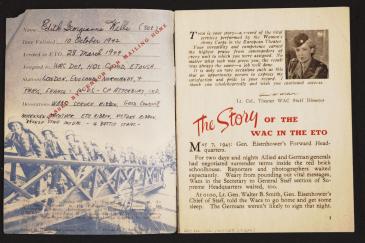 Name: Edith Georgianna Wells (Sgt)
Date Enlisted: 10 October 1942
Arrived in ETO: 28 March 1944
Assigned to: WAC Det, HQ
Stationed:
London, England
Paris, France
Decorations: WAAC Service Ribbon, Good Conduct
ETO Ribbon, Victory Ribbon
MAILING HOME
This is your story—a record of the vital
services performed by the Women's
Army Corps in the European Theater.
Your versatility and competence earned
the highest praise from commanders of every
unit to which Wacs were assigned. No
matter what task was given you, the result
was always the same—a job well done.
It is only on rare occasions such as this
that an opportunity occurs to express my
satisfaction and pride in your record. I
thank you wholeheartedly and wish you continued success.
Lt. Col., Theater WAC Staff Director
The Story OF THE
WAC IN THE ETO
May 7, 1945: Gen. Eisenhower's Forward Head-
quarters.
For two days and nights Allied and German generals
had negotiated surrender terms inside the red brick
schoolhouse. Reporters and photographers waited
expectantly. Weary from pounding out vital messages,
Wacs in the Secretary to General Staff section of Su-
preme Headquarters waited, too.
At 0100, Lt. Gen. Walter B. Smith, Gen. Eisenhower's
Chief of Staff, told the Wacs to go home and get some
sleep. The Germans weren't likely to sign that night.
1